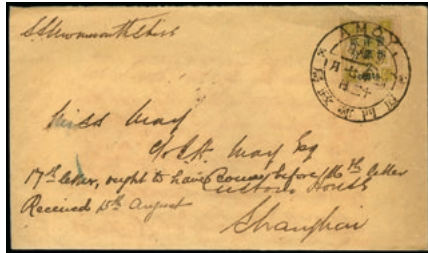 S.S. Monmouthshire
AMOY
Miss May
c/o F. A. May Esq
17th letter, ought to have come before 16th letter
Custom House
Received 15th August
Shanghai